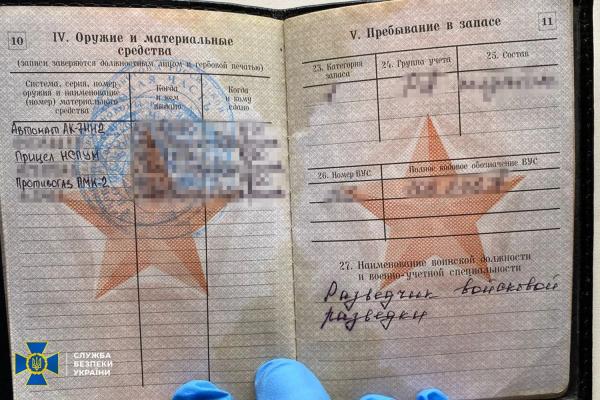 10
IV. Оружие и материальные
средства
(записи заверяются должностным лицом и гербовой печатью)
Система, серия, номер
оружия и наименование
(номер) материального
средства
Когда
и кем
выдано
Когда
и кому
сдано
Автомат
Прицел НСПУМ
Противогаз ПМК-2
11
V. Пребывание в запасе
23. Категория
запаса
24. Группа учета
25. Состав
26. Номер ВУС
Полное кодовое обозначение ВУС
27. Наименование воинской должности
и военно-учетной специальности
Разведчик войсковой
разведки
СЛУЖБА
БЕЗПЕКИ
УКРАЇНИ